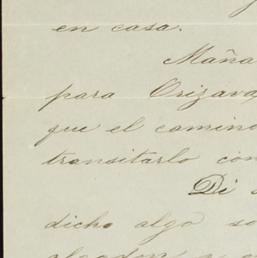 en casa.
Maña
para Orizava
que el camino
transitarlo con
Di
dicho algo so
algodon a